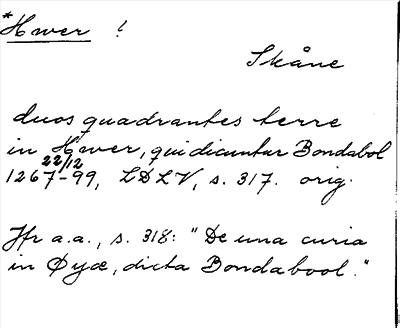 *Hwer !
Skåne
duos quadrantes terre
in Hwer, qui dicuntur Bondabol
22/12
1267-99, LDLV, s. 317. orig.
Jfr a.a., s. 318: "De una curia
in Øyæ, dicta Bondabool."